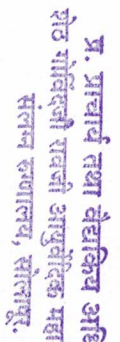 प्र. प्राचार्य तथा वैद्यकिय अधि
शेठ गोविंदजी रावजी आयुर्वेदिक महा
संलग्न रुग्णालय, सोलापूर.